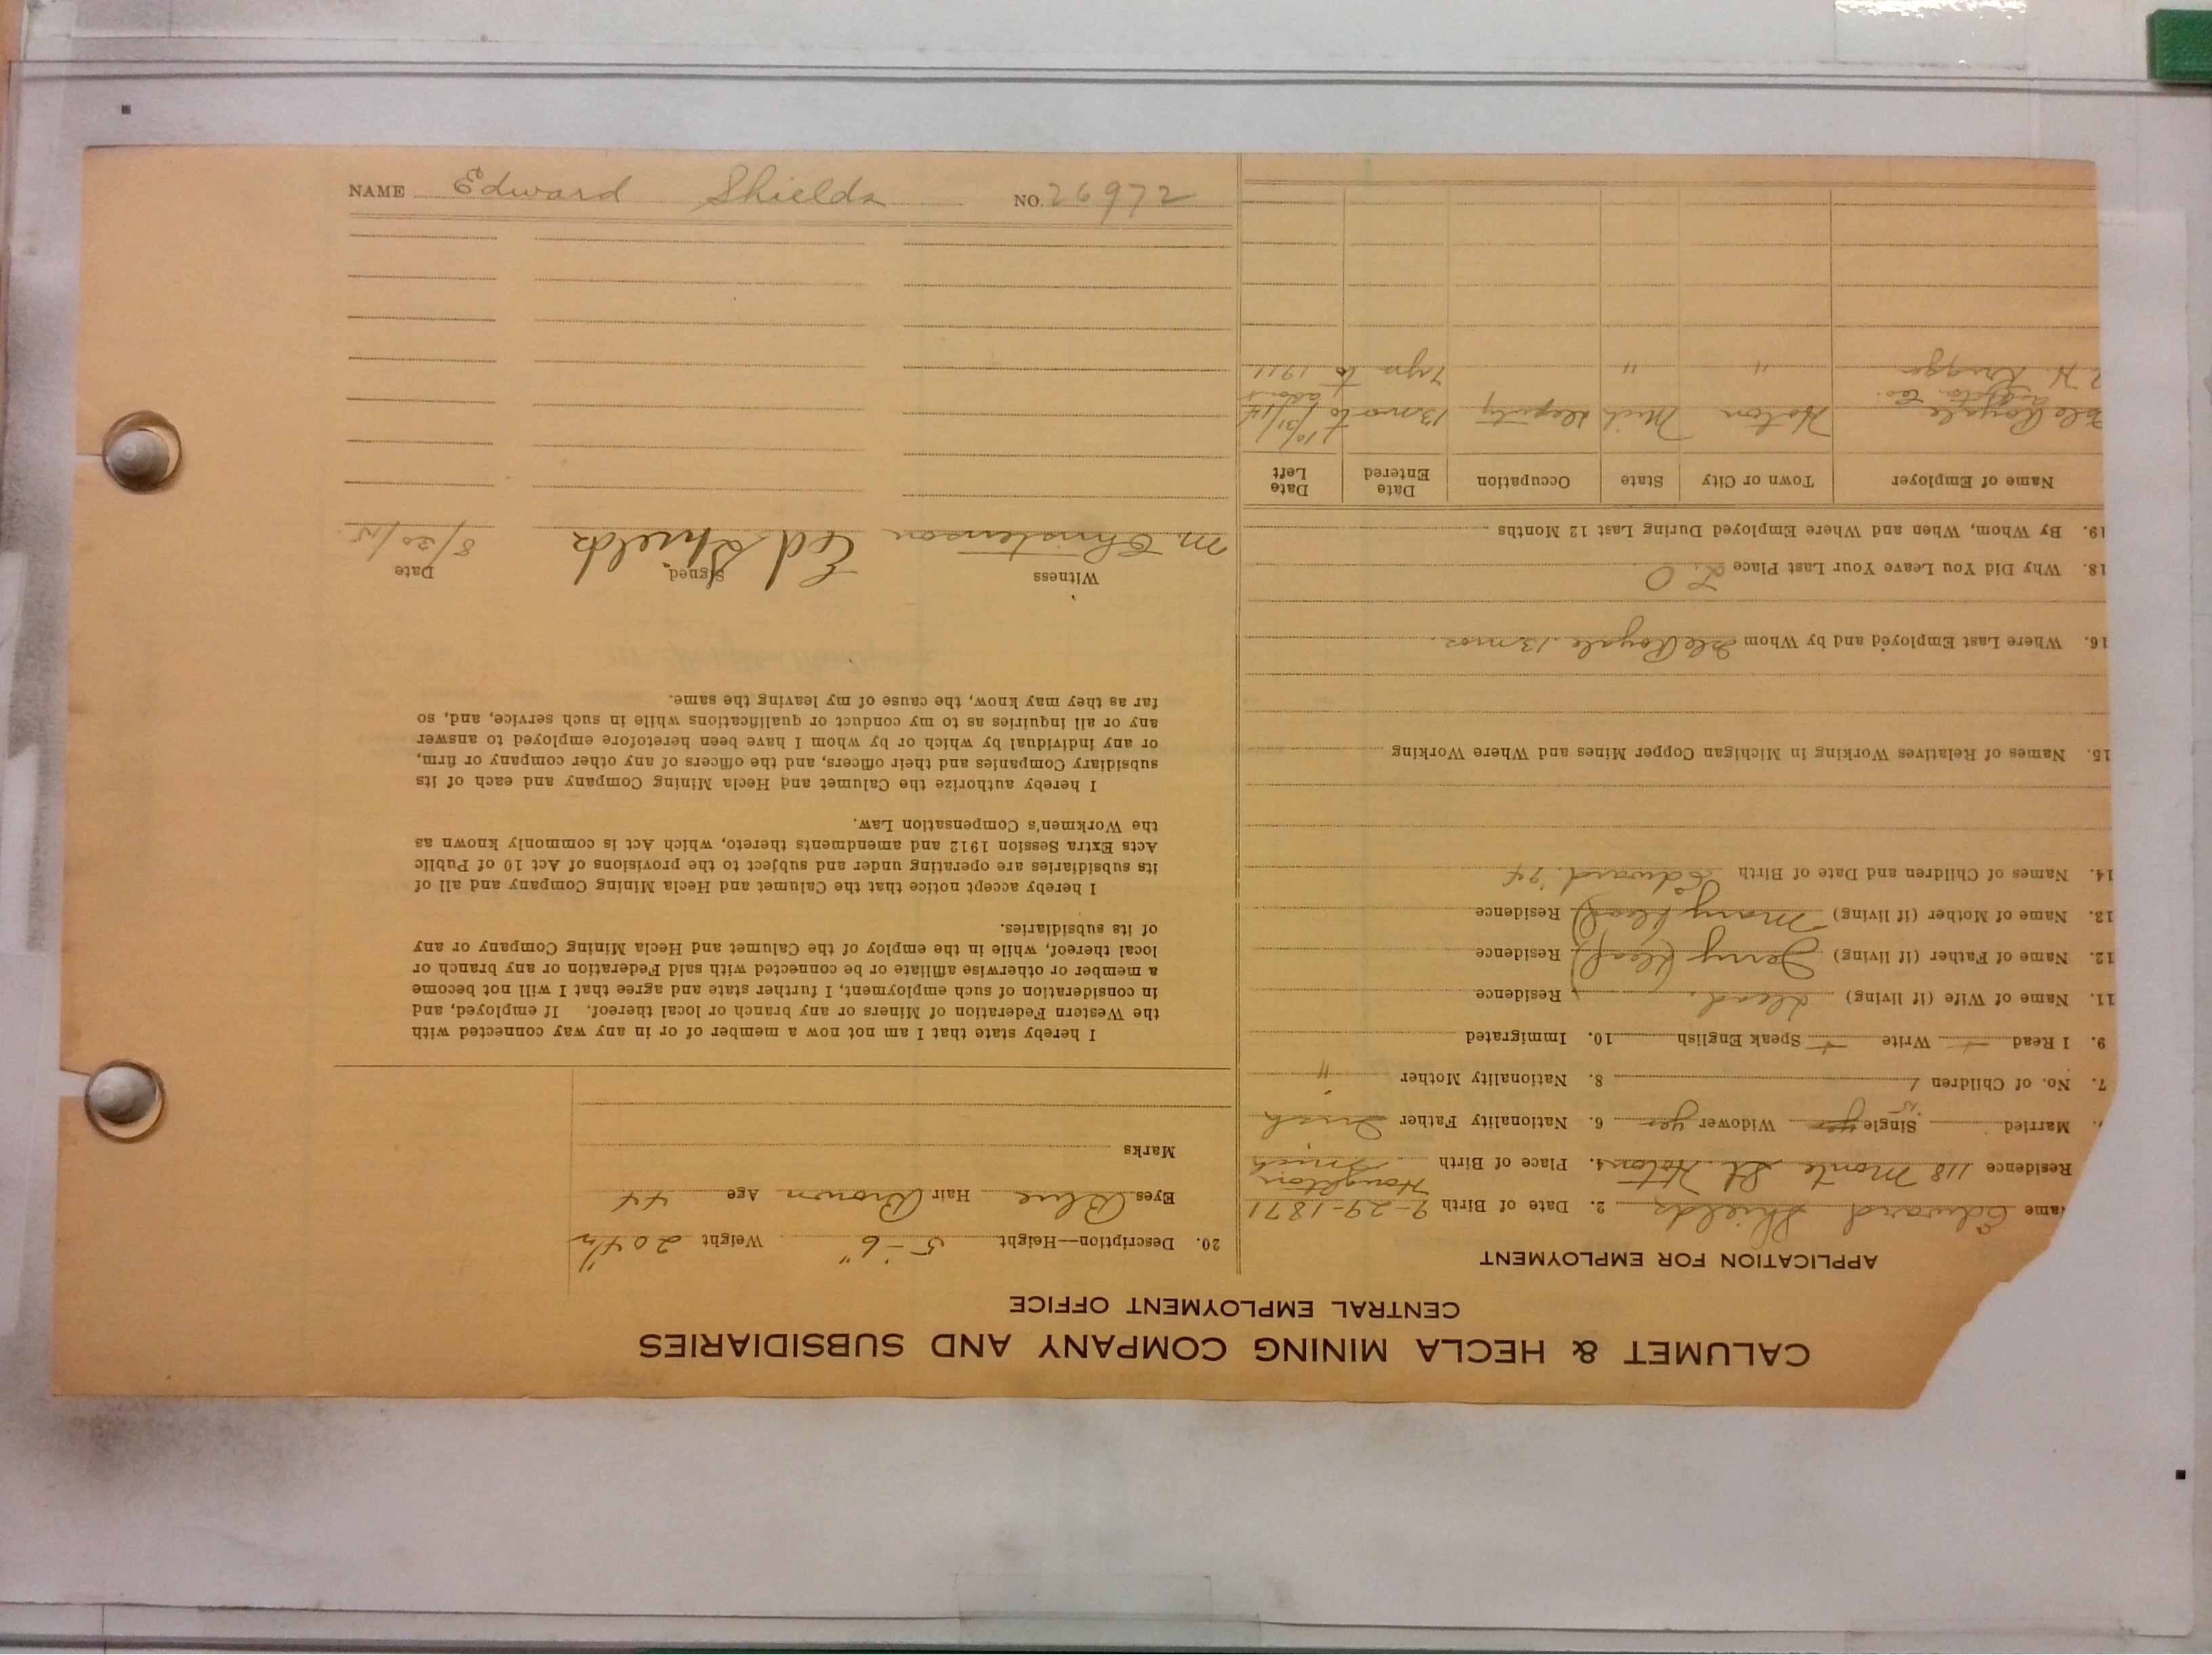 CALUMET & HECLA MINING COMPANY AND SUBSIDIARIES
CENTRAL EMPLOYMENT OFFICE
APPLICATION FOR EMPLOYMENT
Name Edward Shields 2. Date of Birth 9-29-1871
Residence 118 Monte St. Hoton 4. Place of Birth Houghton Mich
Married Single yes Widower yes 6. Nationality Father Irish
7. No. of Children 1 8. Nationality Mother "
9. I Read + Write + Speak English 10. Immigrated
11. Name of Wife (if living) Dead. Residence
12. Name of Father (if living) Jerry (Dead) Residence
13. Name of Mother (if living) Mary (Dead) Residence
14. Names of Children and Date of Birth Edward. 94
15. Names of Relatives Working in Michigan Copper Mines and Where Working
16. Where Last Employed and by Whom Isle Royale 13 mos.
18. Why Did You Leave Your Last Place L. O.
19. By Whom, When and Where Employed During Last 12 Months
Name of Employer Town or City State Occupation Date Entered Date Left
Isle Royale Hoton Mich Deputy 13 mo to 10/31/14
" " 7 yrs to 1911
20. Description—Height 5-6" Weight 204
Eyes Blue Hair Brown Age 44
Marks
I hereby state that I am not now a member of or in any way connected with
the Western Federation of Miners or any branch or local thereof. If employed, and
in consideration of such employment, I further state and agree that I will not become
a member or otherwise affiliate or be connected with said Federation or any branch or
local thereof, while in the employ of the Calumet and Hecla Mining Company or any
of its subsidiaries.
I hereby accept notice that the Calumet and Hecla Mining Company and all of
its subsidiaries are operating under and subject to the provisions of Act 10 of Public
Acts Extra Session 1912 and amendments thereto, which Act is commonly known as
the Workmen's Compensation Law.
I hereby authorize the Calumet and Hecla Mining Company and each of its
subsidiary Companies and their officers, and the officers of any other company or firm,
or any individual by which or by whom I have been heretofore employed to answer
any or all inquiries as to my conduct or qualifications while in such service, and, so
far as they may know, the cause of my leaving the same.
Witness Signed Date
M. Christenson Ed Shields 8/30/15
NAME Edward Shields NO. 26972